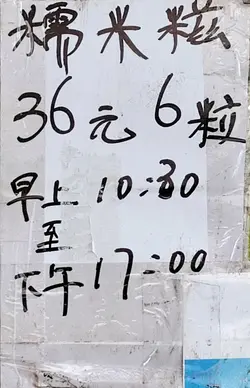 糯米糍
36元6粒
早上10:30
至
下午17:00